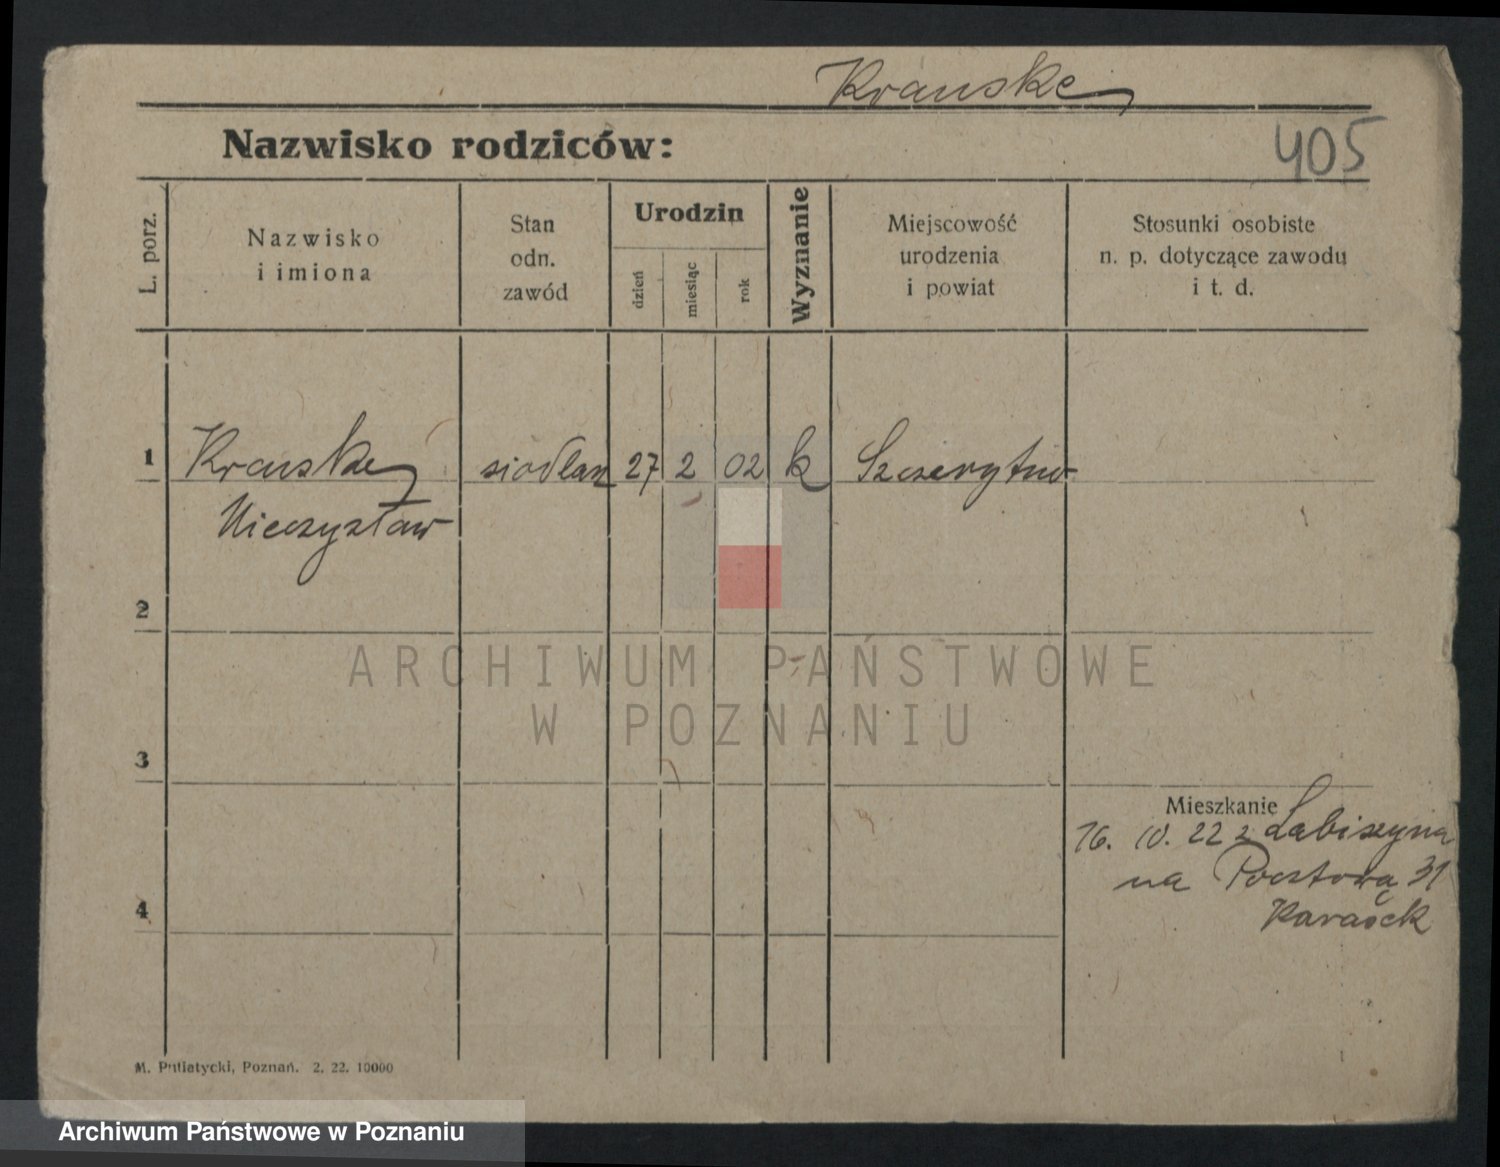 Krauske
Nazwisko rodziców:
405
L. porz.
Nazwisko
i imiona
Stan
odn.
zawód
Urodzin
dzień
miesiąc
rok
Wyznanie
Miejscowość
urodzenia
i powiat
Stosunki osobiste
n. p. dotyczące zawodu
i t. d.
1 Krauske siodlarz 27 2 02 k
Mieczysław
2
ARCHIWUM PAŃSTWOWE
W POZNANIU
3
Mieszkanie
16. 10. 22 z Labiszyna
na Pocztową 31
4
M. Putiatycki, Poznań. 2. 22. 10000
Archiwum Państwowe w Poznaniu